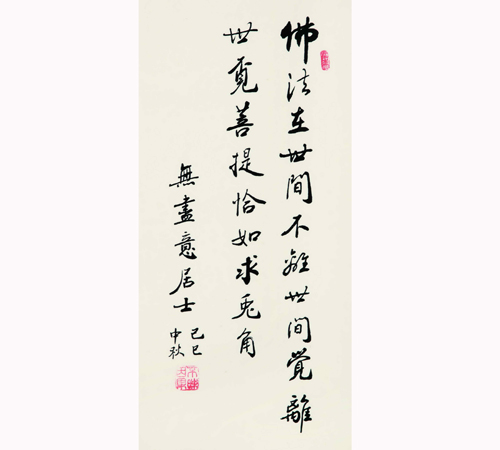 佛法在世間不離世間覺離
世覓菩提恰如求兔角
無盡意居士
己巳
中秋